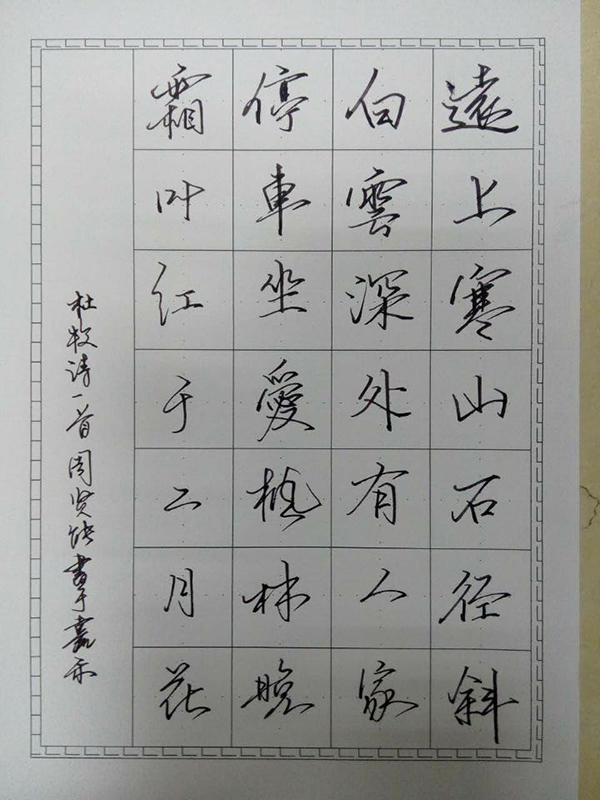 遠上寒山石径斜
白雲深处有人家
停車坐愛楓林晚
霜叶红于二月花
杜牧诗一首周贤能书于嘉禾